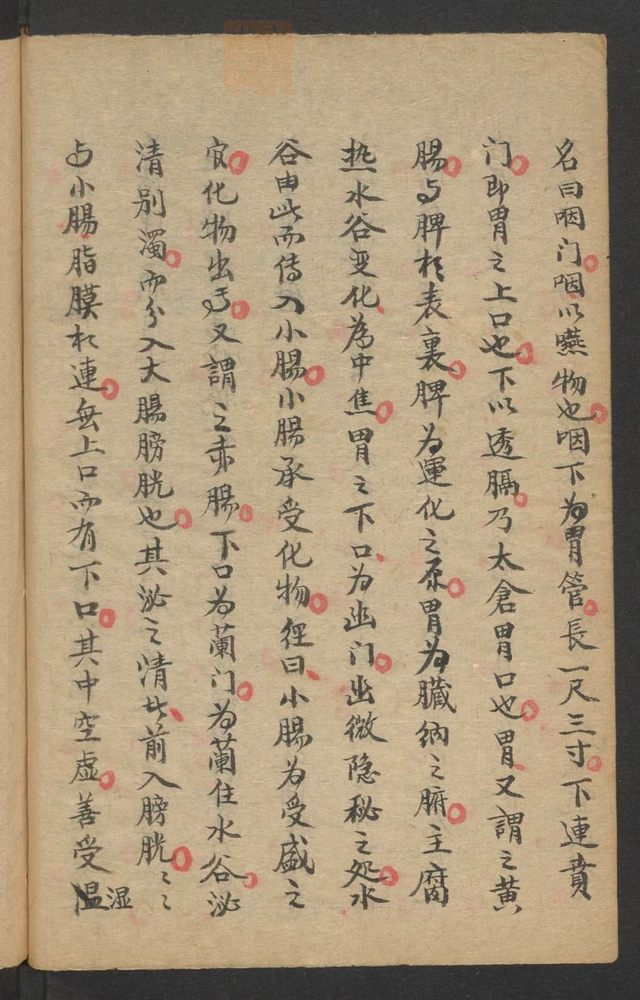 名曰咽门咽以嚥物也咽下为胃管長一尺三寸下連賁
门即胃之上口也下以透膈乃太倉胃口也胃又謂之黄
腸与脾相表裏脾为運化之原胃为臓納之腑主腐
热水谷变化為中焦胃之下口为幽门幽微隐秘之処水
谷由此而传入小腸小腸承受化物經曰小腸为受盛之
官化物出焉又謂之赤腸下口为蘭门为蘭住水谷泌
清别濁而分入大腸膀胱也其泌之清者前入膀胱〻
与小腸脂膜相連無上口而有下口其中空虚善受湿